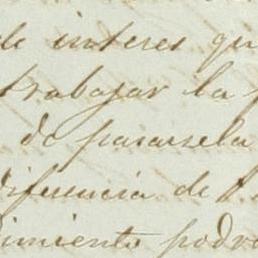 de interes qu
trabajar la
de pasarsela
diferencia de
dimiento podr